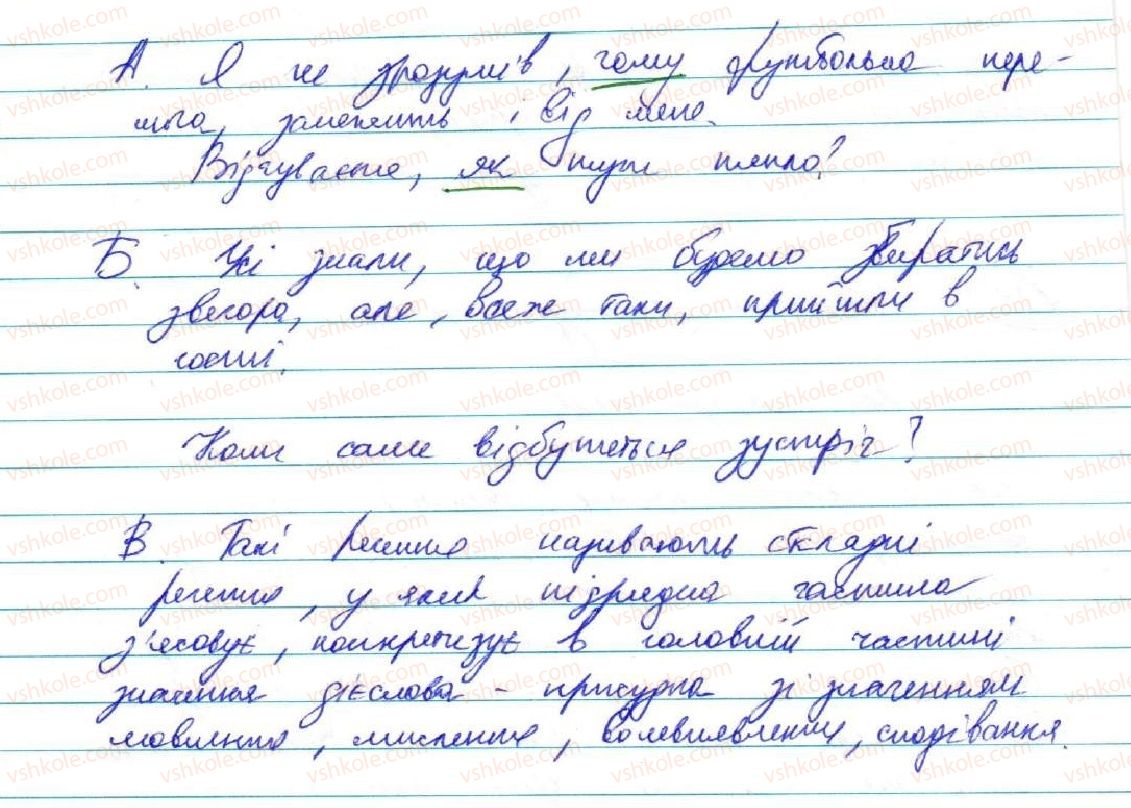 А. Я не зрозумів, чому футбольна пере-
мога, залежить і від мене.
Відчуваєте, як тут тепло?
Б. Усі знали, що ми будемо збиратись
звечора, але, все ж таки, прийшли в
гості.
Коли саме відбудеться зустріч?
В. Такі речення називають складні
речення, у яких підрядна частина
з'ясовує, конкретизує в головній частині
значення дієслова - присудка зі значенням
мовлення, мислення, волевиявлення, сподівання.